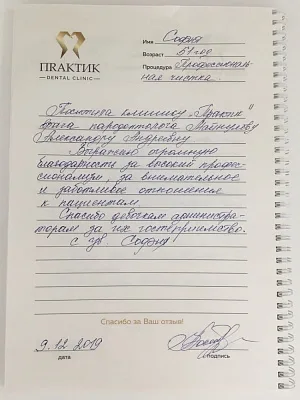 ПRАКТИК
DENTAL CLINIC
Имя София
Возраст 51 год
Процедура Профессиональ-
ная чистка.
клинику „Практик"
врача пародонтолога
Александру Андреевну
Выражаю огромную
благодарность за высокий профес-
сионализм, за внимательное
и заботливое отношение
к пациентам.
Спасибо девочкам администра-
торам за их гостеприимство.
С ув. София
Спасибо за Ваш отзыв!
9.12 2019
дата
подпись